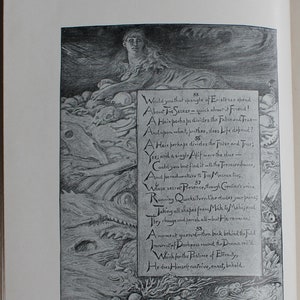 Would you that spangle of Existence spend
About The Secret—quick about it, Friend!
A Hair perhaps divides the False and True—
And upon what, prithee, does Life depend?
A Hair perhaps divides the False and True;
Yes; and a single Alif were the clue—
Could you but find it—to the Treasure-house,
And peradventure to The Master too;
Whose secret Presence, through Creation's veins
Running Quicksilver-like eludes your pains;
Taking all shapes from Máh to Máhi; and
They change and perish all—but He remains;
A moment guess'd—then back behind the Fold
Immerst of Darkness round the Drama roll'd
Which for the Pastime of Eternity,
He does Himself contrive, enact, behold.